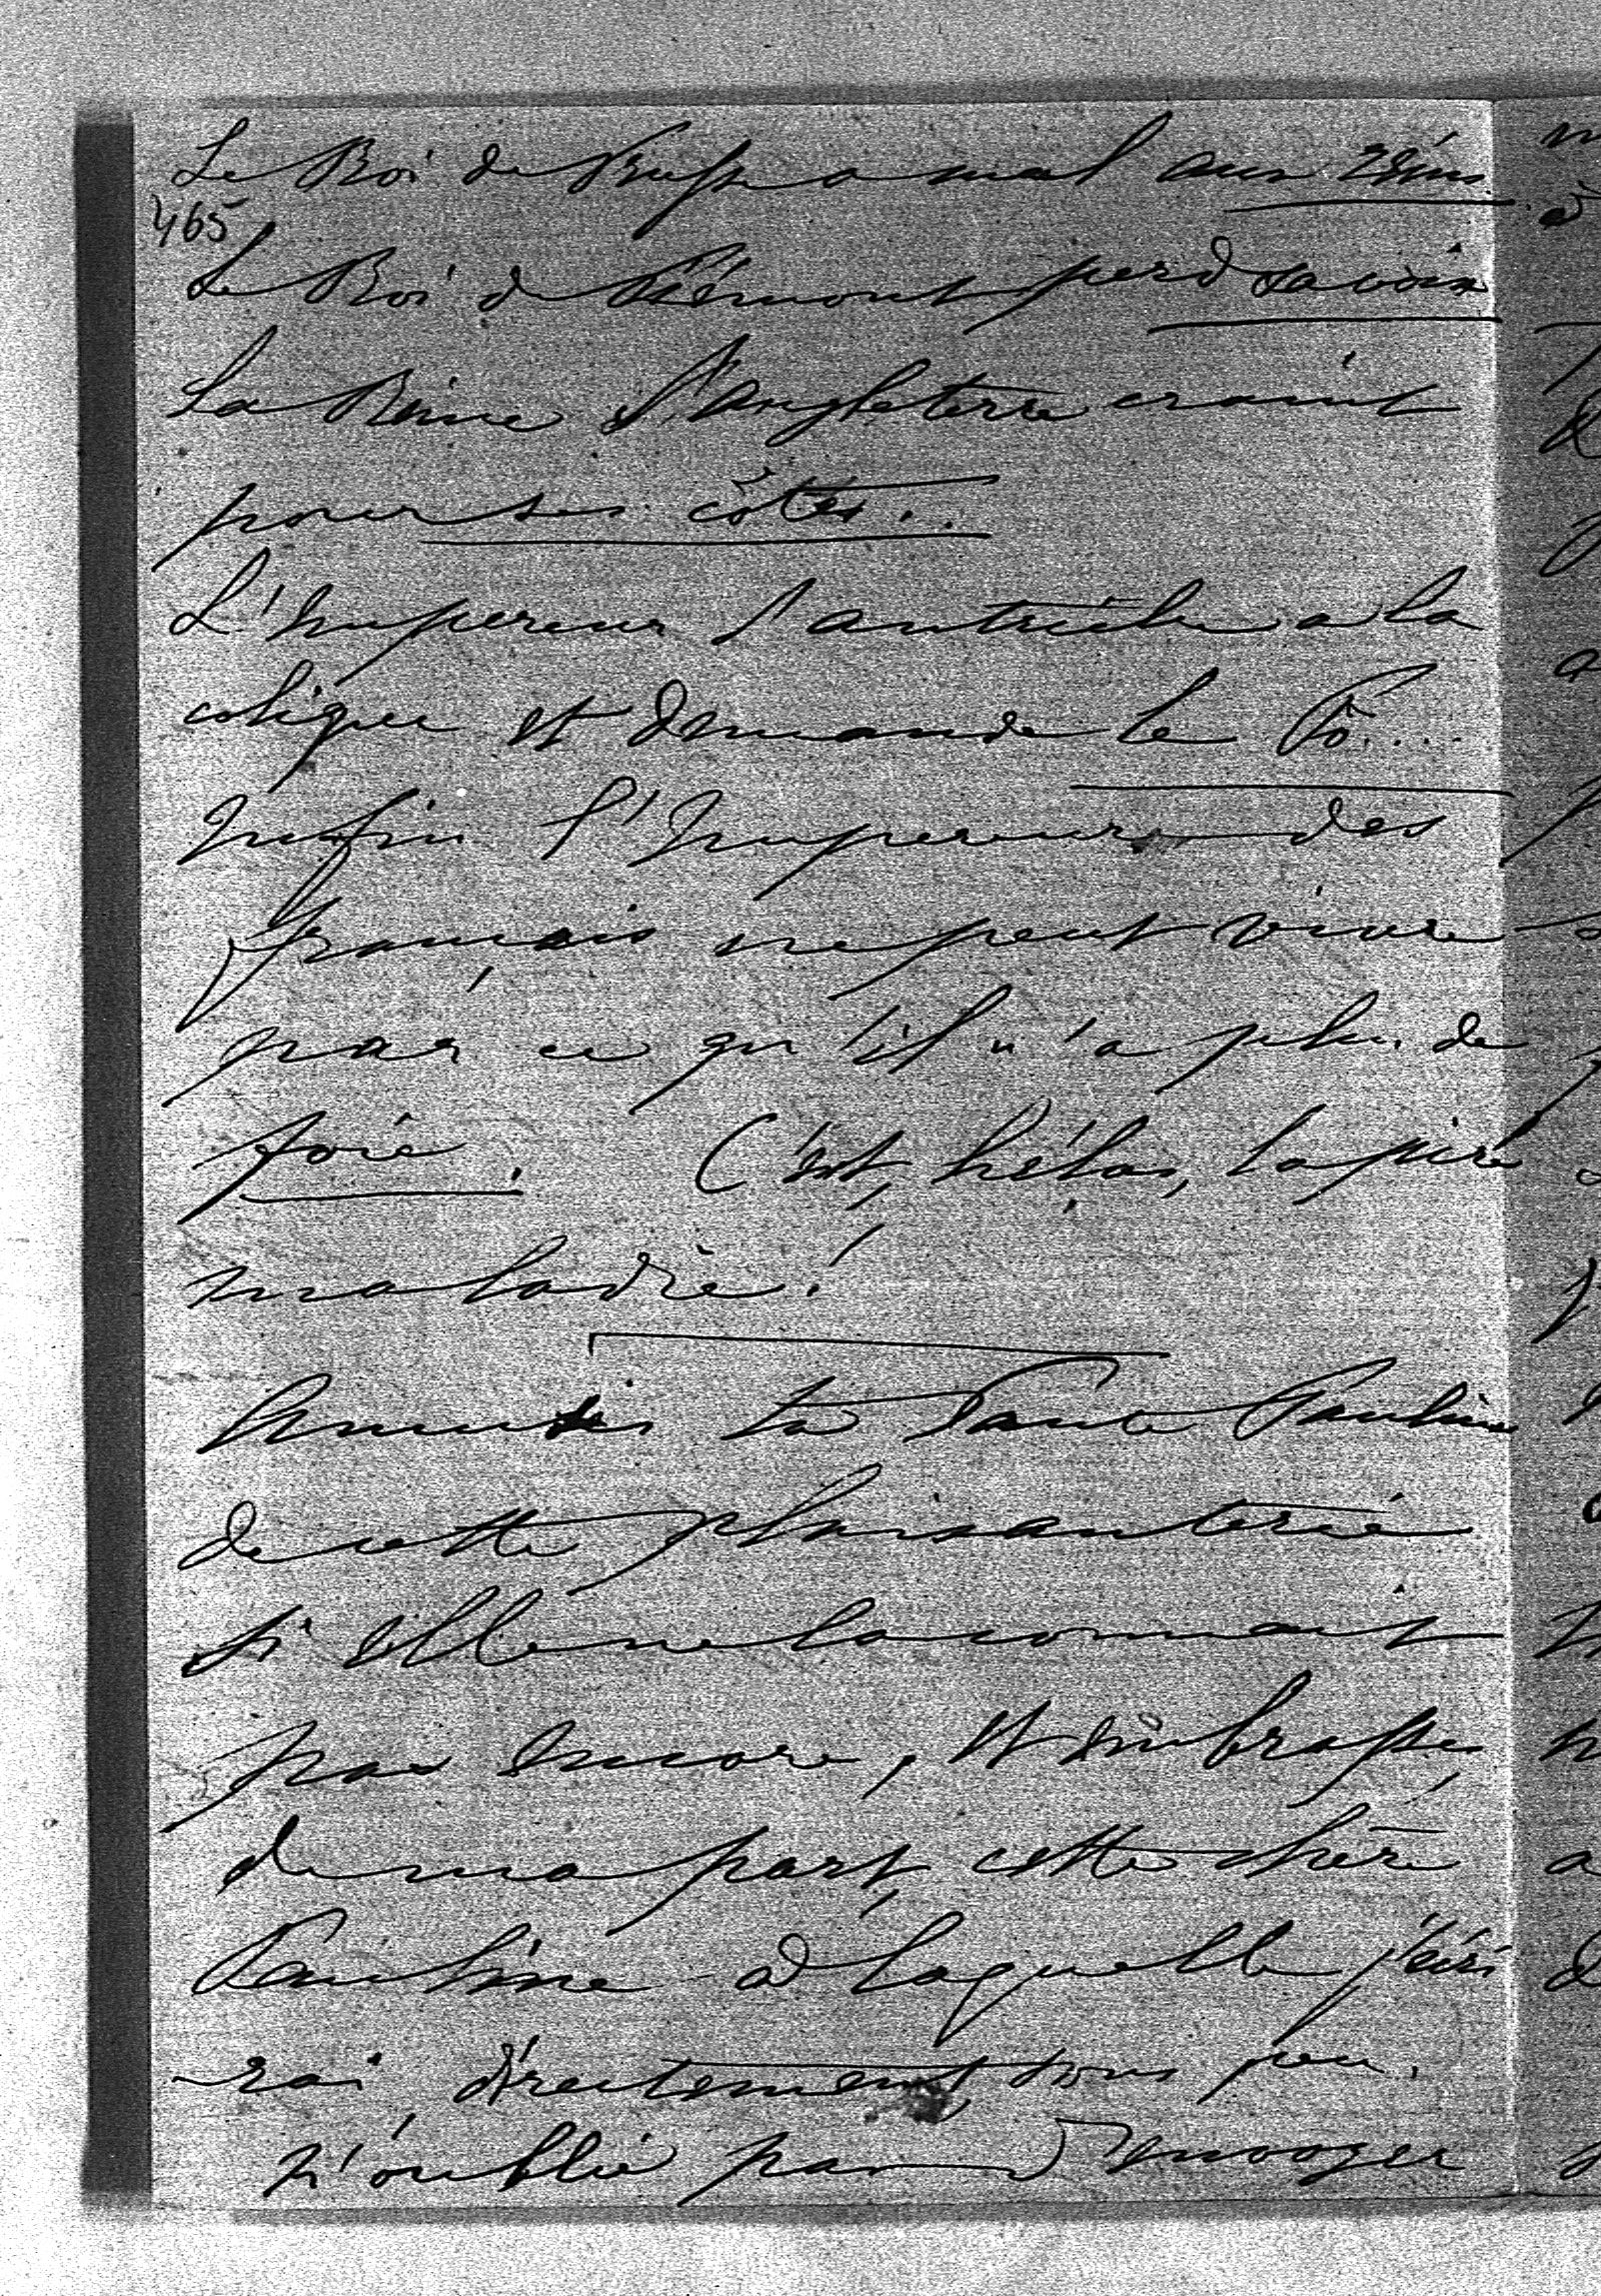 Le Roi de Prusse a mal aux reins.
465
Le Roi de Piémont perd sa voix
La Reine d'Angleterre craint
pour ses côtes..
L'Empereur d'autriche a la
colique et demande le Pô...
Enfin l'Empereur des
français ne peut vivre
parce qu'il n'a plus de
foie. C'est, hélas, la pire
maladie!
Amuses ta Tante Pauline
de cette plaisanterie
si elle ne la connait
pas encore, et embrasse,
de ma part, cette chère
Pauline à laquelle j'écri
rai directement sous peu.
N'oublie pas d'envoyer